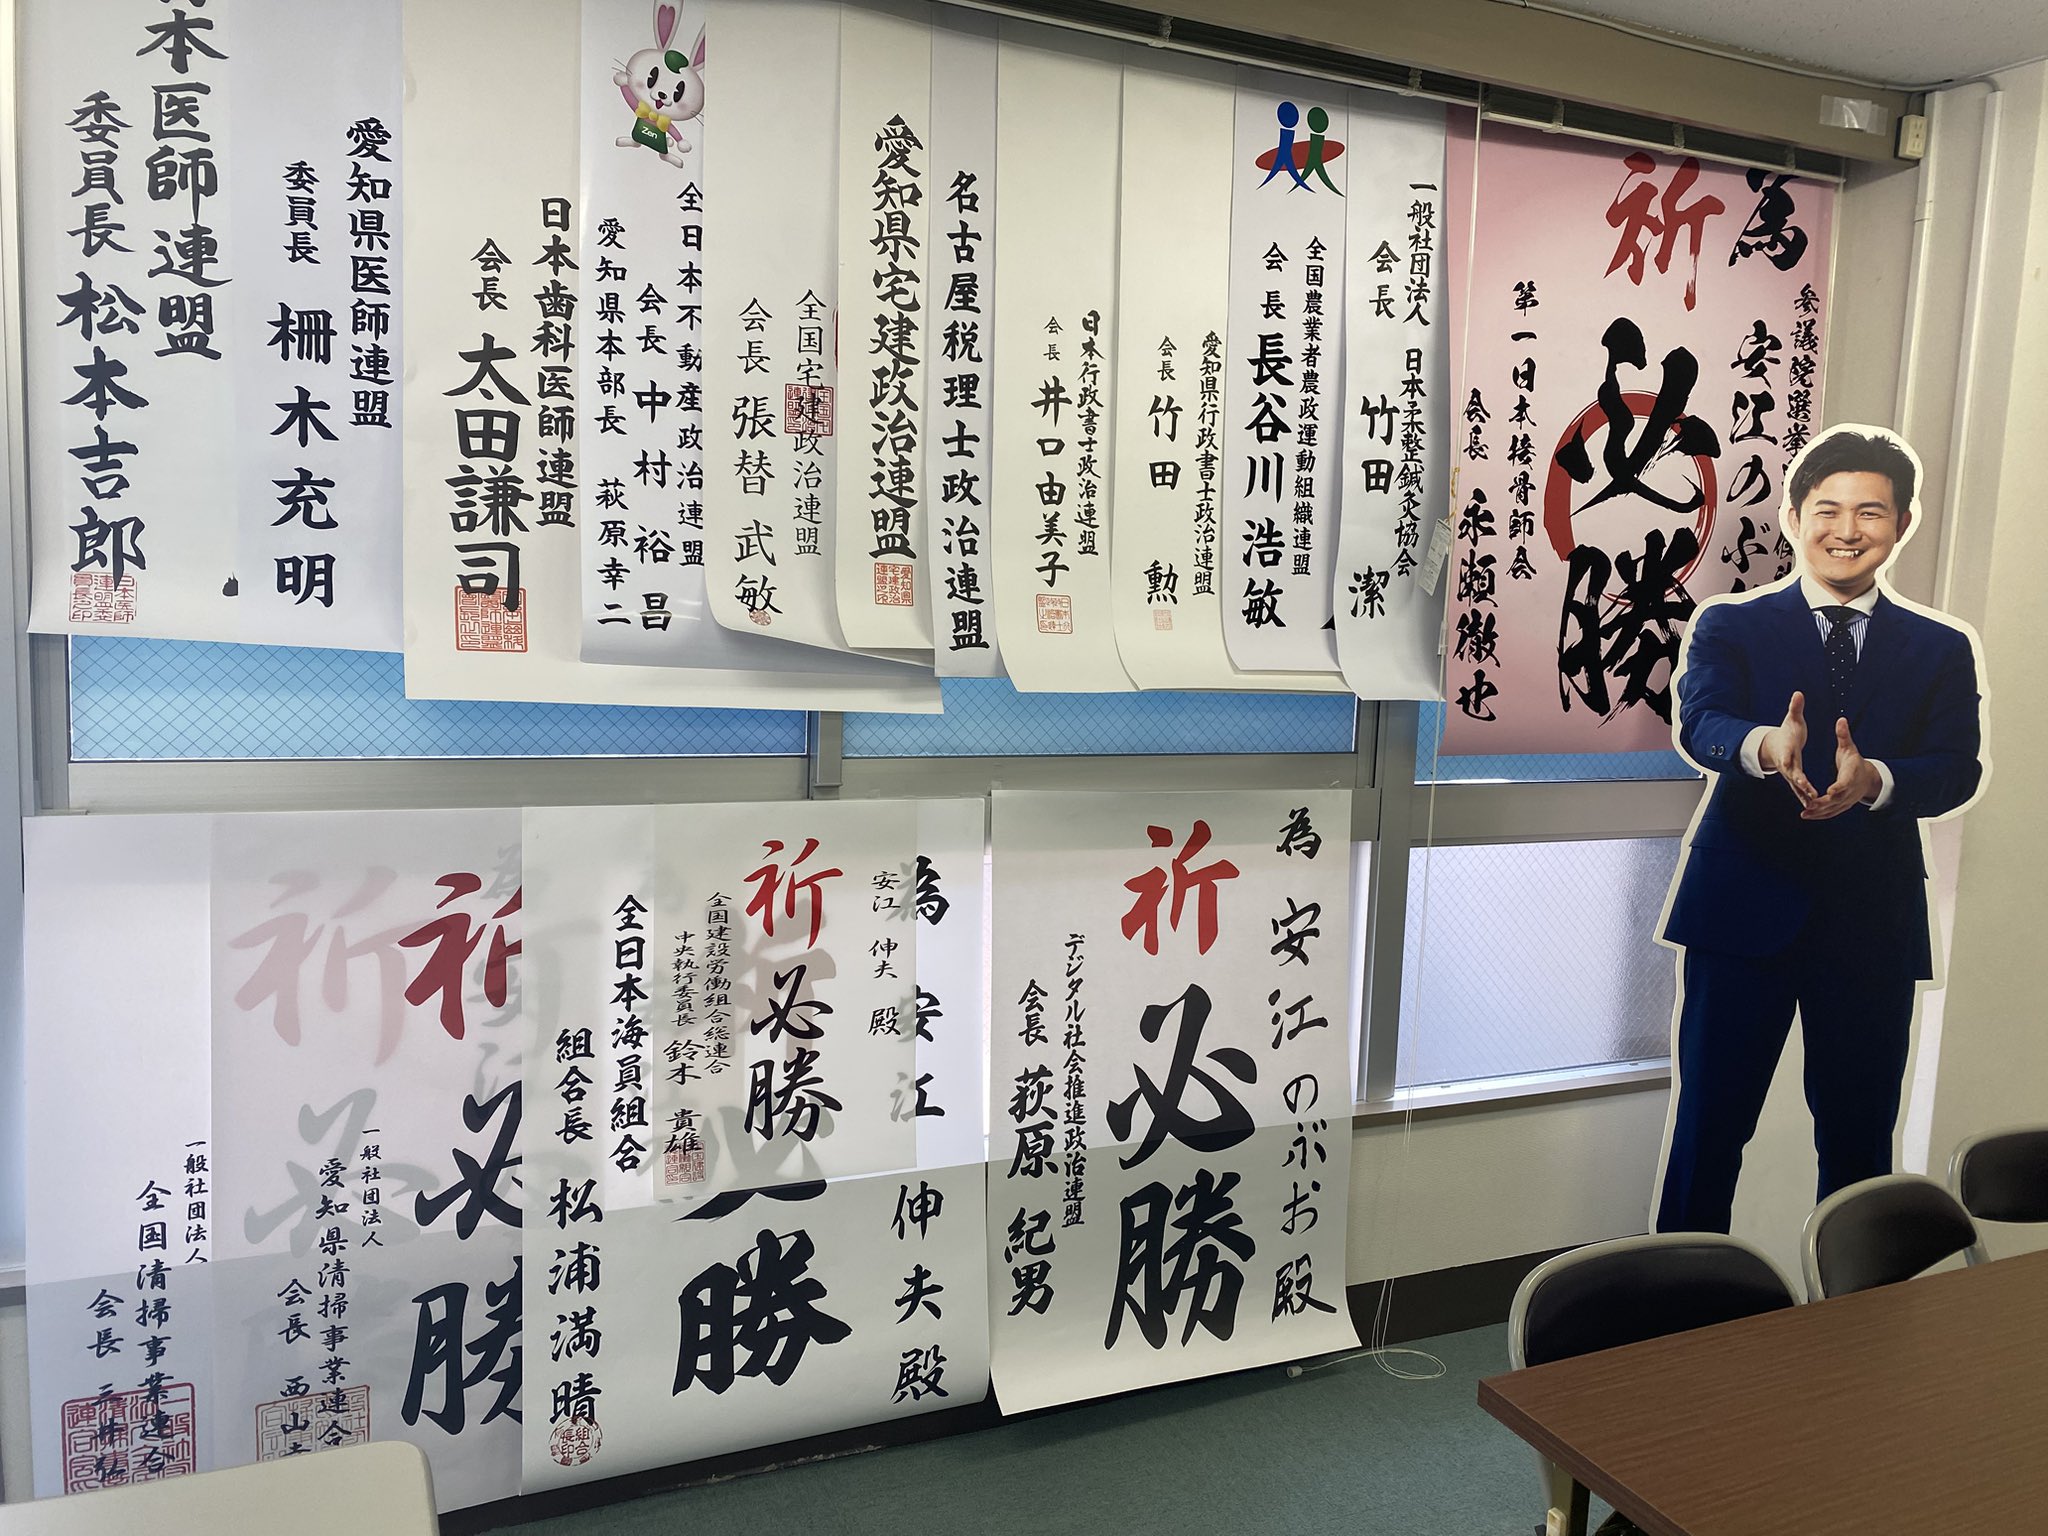 為
参議院選挙
安江のぶ
祈
必勝
第一日本接骨師会
会長 永瀬徹也
一般社団法人 日本柔整鍼灸協会
会長 竹田 潔
全国農業者農政運動組織連盟
会長 長谷川浩敏
愛知県行政書士政治連盟
会長 竹田 勲
日本行政書士政治連盟
会長 井口由美子
名古屋税理士政治連盟
愛知県宅建政治連盟
全国宅建政治連盟
会長 張替武敏
Zen
全日本不動産政治連盟
会長 中村裕昌
愛知県本部長 萩原幸二
日本歯科医師連盟
会長 太田謙司
愛知県医師連盟
委員長 柵木充明
本医師連盟
委員長 松本吉郎
為 安江のぶお殿
祈
必勝
デジタル社会推進政治連盟
会長 荻原紀男
為 安江 伸夫殿
勝
安江 伸夫 殿
祈
必勝
全国建設労働組合総連合
中央執行委員長 鈴木 貴雄
全日本海員組合
組合長 松浦満晴
祈
必勝
一般社団法人
愛知県清掃事業連合
会長 西山
祈
一般社団法人
全国清掃事業連合
会長 三井弘